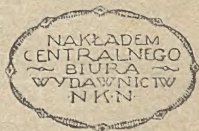 NAKŁADEM
CENTRALNEGO
BIURA
WYDAWNICTW
N·K·N·